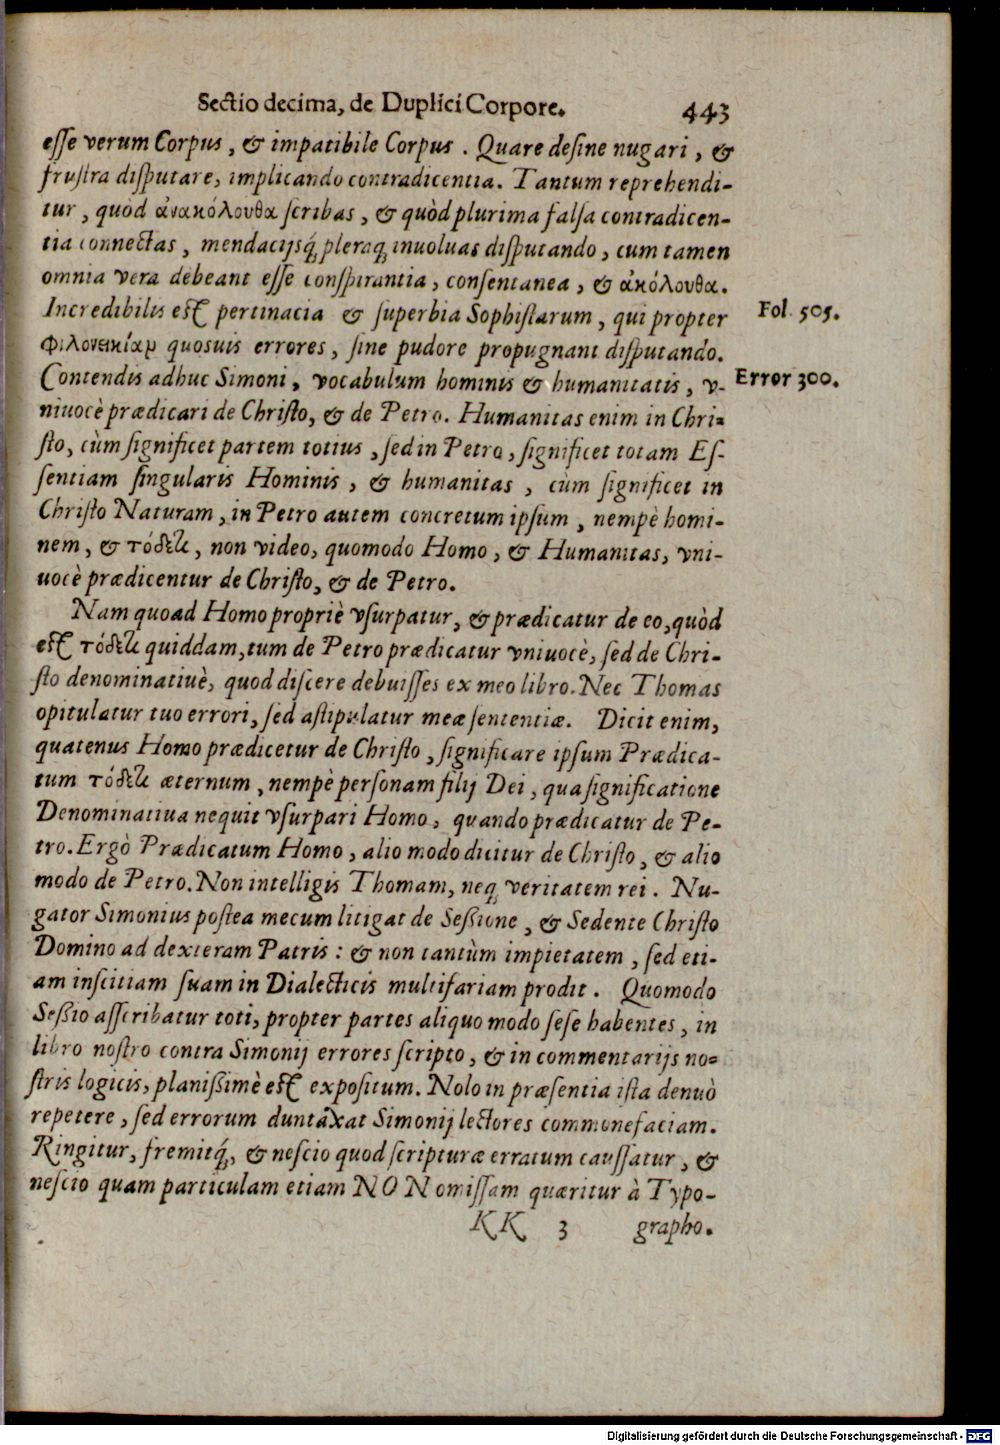 Sectio decima, de Duplici Corpore. 443
esse verum Corpus, & impatibile Corpus. Quare desine nugari, &
frustra disputare, implicando contradicentia. Tantum reprehendi-
tur, quòd ἀνακόλουθα scribas, & quòd plurima falsa contradicen-
tia connectas, mendacijsq́; pleraq; inuoluas disputando, cum tamen
omnia vera debeant esse conspirantia, consentanea, & ἀκόλουθα.
Incredibilis est pertinacia & superbia Sophistarum, qui propter
Fol. 505.
Φιλονεικίαμ quosuis errores, sine pudore propugnant disputando.
Contendis adhuc Simoni, vocabulum hominis & humanitatis, v-
Error 300.
niuocè prædicari de Christo, & de Petro. Humanitas enim in Chri-
sto, cùm significet partem totius, sed in Petro, significet totam Es-
sentiam singularis Hominis, & humanitas, cùm significet in
Christo Naturam, in Petro autem concretum ipsum, nempè homi-
nem, & τόδετι, non video, quomodo Homo, & Humanitas, vni-
uocè prædicentur de Christo, & de Petro.
Nam quoad Homo propriè vsurpatur, & prædicatur de eo, quòd
est τόδετι quiddam, tum de Petro prædicatur vniuocè, sed de Chri-
sto denominatiuè, quod discere debuisses ex meo libro. Nec Thomas
opitulatur tuo errori, sed astipulatur meæ sententiæ. Dicit enim,
quatenus Homo prædicetur de Christo, significare ipsum Prædica-
tum τόδετι æternum, nempè personam filij Dei, qua significatione
Denominatiua nequit vsurpari Homo, quando prædicatur de Pe-
tro. Ergò Prædicatum Homo, alio modo dicitur de Christo, & alio
modo de Petro. Non intelligis Thomam, neq; veritatem rei. Nu-
gator Simonius postea mecum litigat de Seßione, & Sedente Christo
Domino ad dexteram Patris: & non tantùm impietatem, sed eti-
am inscitiam suam in Dialecticis multifariam prodit. Quomodo
Seßio asscribatur toti, propter partes aliquo modo sese habentes, in
libro nostro contra Simonij errores scripto, & in commentarijs no-
stris logicis, planißimè est expositum. Nolo in præsentia ista denuò
repetere, sed errorum duntaxat Simonij lectores commonefaciam.
Ringitur, fremitq́;, & nescio quod scripturæ erratum caussatur, &
nescio quam particulam etiam NON omissam quæritur à Typo-
KK 3 grapho.
Digitalisierung gefördert durch die Deutsche Forschungsgemeinschaft - DFG